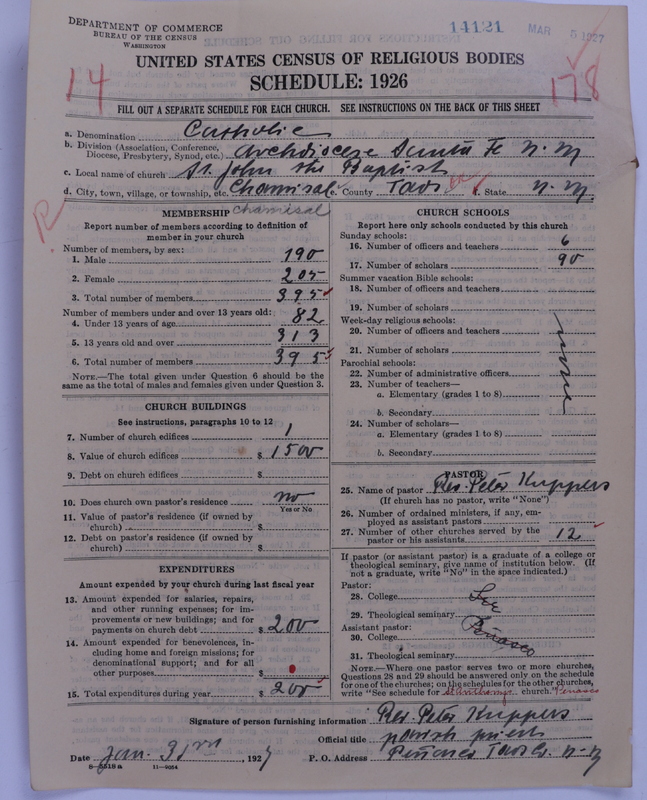 DEPARTMENT OF COMMERCE
BUREAU OF THE CENSUS
WASHINGTON
14121 MAR 5 1927
UNITED STATES CENSUS OF RELIGIOUS BODIES
SCHEDULE: 1926
14
178
FILL OUT A SEPARATE SCHEDULE FOR EACH CHURCH. SEE INSTRUCTIONS ON THE BACK OF THIS SHEET
a. Denomination Catholic
b. Division (Association, Conference, Diocese, Presbytery, Synod, etc.) Archdiocese Santa Fe N. M
c. Local name of church St. John the Baptist
d. City, town, village, or township, etc. Chamisal e. County Taos f. State N. M
R
MEMBERSHIP Chamisal
Report number of members according to definition of
member in your church
Number of members, by sex:
1. Male 190
2. Female 205
3. Total number of members 395
Number of members under and over 13 years old:
4. Under 13 years of age 82
5. 13 years old and over 313
6. Total number of members 395
NOTE.—The total given under Question 6 should be the
same as the total of males and females given under Question 3.
CHURCH BUILDINGS
See instructions, paragraphs 10 to 12
7. Number of church edifices 1
8. Value of church edifices $ 1500
9. Debt on church edifices $
10. Does church own pastor's residence no
Yes or No
11. Value of pastor's residence (if owned by
church) $
12. Debt on pastor's residence (if owned by
church) $
EXPENDITURES
Amount expended by your church during last fiscal year
13. Amount expended for salaries, repairs,
and other running expenses; for im-
provements or new buildings; and for
payments on church debt $ 200
14. Amount expended for benevolences, in-
cluding home and foreign missions; for
denominational support; and for all
other purposes $
15. Total expenditures during year $ 200
CHURCH SCHOOLS
Report here only schools conducted by this church
Sunday schools:
16. Number of officers and teachers 6
17. Number of scholars 90
Summer vacation Bible schools:
18. Number of officers and teachers
19. Number of scholars
Week-day religious schools:
20. Number of officers and teachers
21. Number of scholars
none
Parochial schools:
22. Number of administrative officers
23. Number of teachers—
a. Elementary (grades 1 to 8)
b. Secondary
24. Number of scholars—
a. Elementary (grades 1 to 8)
b. Secondary
PASTOR
25. Name of pastor Rev. Peter Kuppers
(If church has no pastor, write "None")
26. Number of ordained ministers, if any, em-
ployed as assistant pastors
27. Number of other churches served by the
pastor or his assistants 12
If pastor (or assistant pastor) is a graduate of a college or
theological seminary, give name of institution below. (If
not a graduate, write "No" in the space indicated.)
Pastor:
28. College See
29. Theological seminary
Assistant pastor: Peñasco
30. College
31. Theological seminary
NOTE.—Where one pastor serves two or more churches,
Questions 28 and 29 should be answered only on the schedule
for one of the churches; on the schedules for the other churches,
write "See schedule for St Anthony church." Penasco
Signature of person furnishing information Rev. Peter Kuppers
Official title parish priest
Date Jan. 31rd, 1927 P. O. Address Peñasco Taos Co. N-M
8—5518a 11—9054